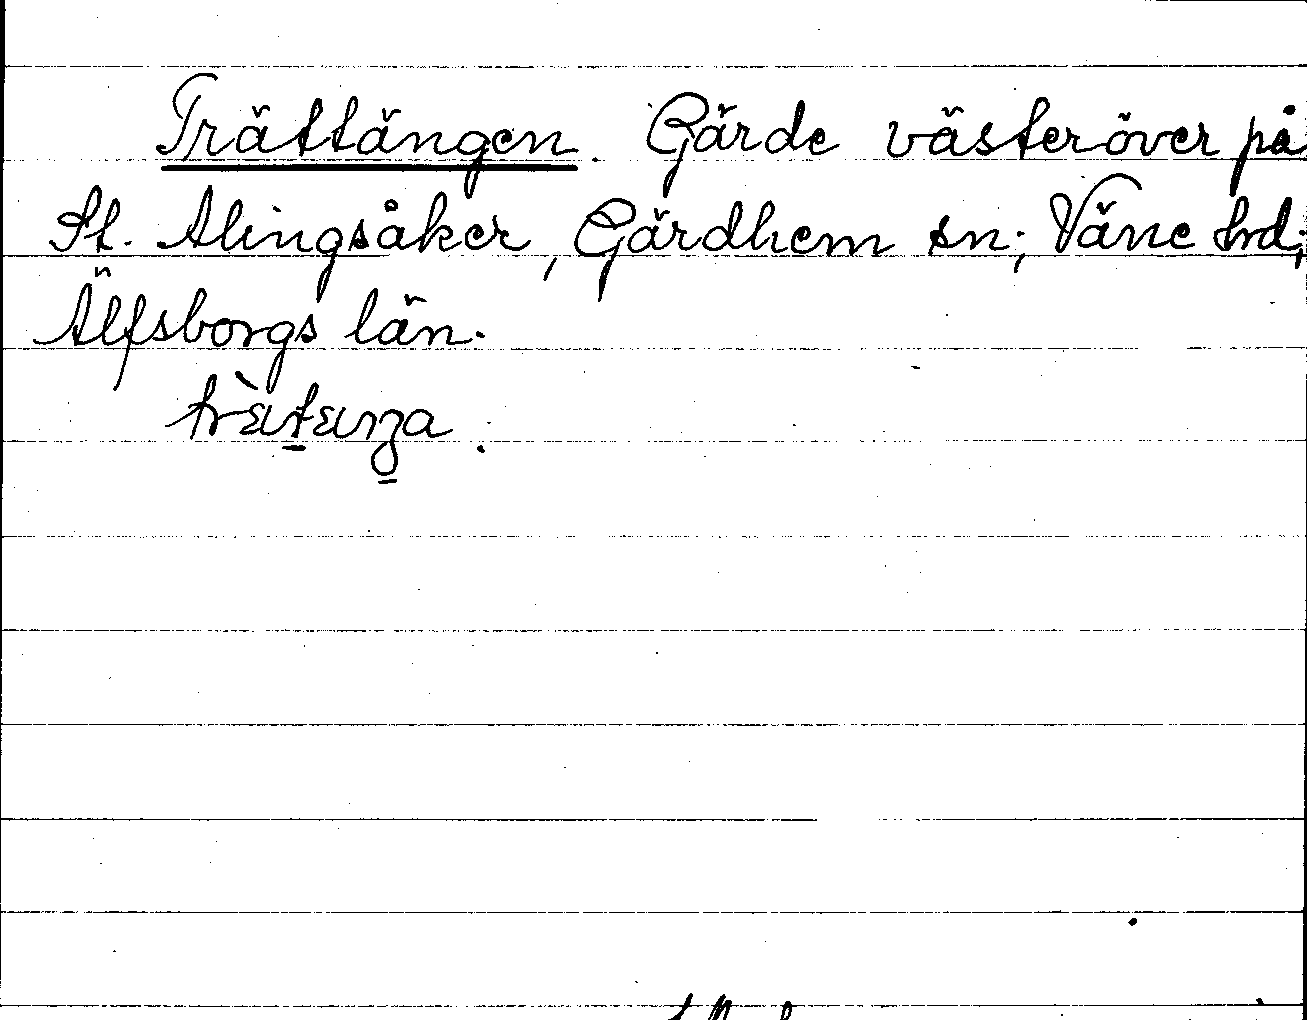 Trättängen. Gärde västeröver på
St. Alingsåker, Gärdhem sn; Väne hd;
Älfsborgs län.